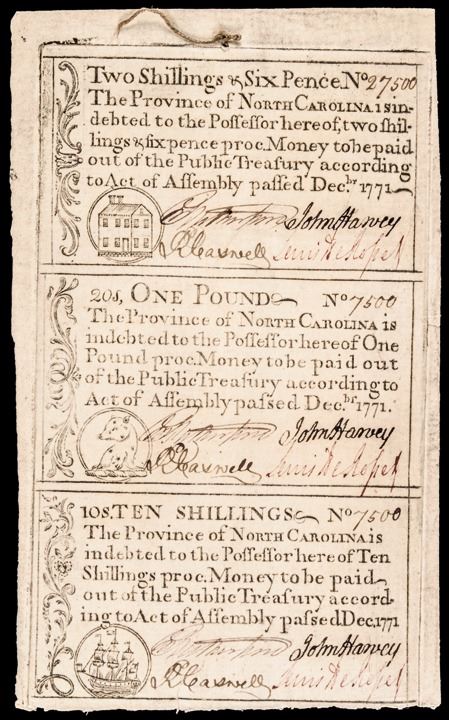 Two Shillings & Six Pence. No 27500
The Province of NORTH CAROLINA is in-
debted to the Possessor here of, two shil-
lings & six pence proc. Money to be paid
out of the Public Treasury according
to Act of Assembly passed Decbr. 1771
John Harvey
RCaswell Lewis De Rosset
20s, ONE POUND No 7500
The Province of NORTH CAROLINA is
indebted to the Possessor here of One
Pound proc. Money to be paid out
of the Public Treasury according to
Act of Assembly passed Decbr. 1771.
John Harvey
RCaswell Lewis De Rosset
10s. TEN SHILLINGS No 7500
The Province of NORTH CAROLINA is
indebted to the Possessor here of Ten
Shillings proc. Money to be paid
out of the Public Treasury accord-
ing to Act of Assembly passed Dec. 1771
John Harvey
RCaswell Lewis De Rosset